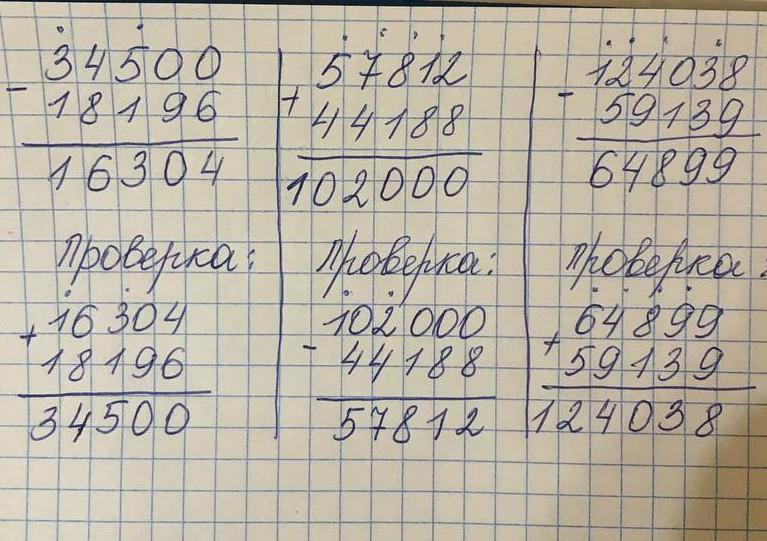 34500
- 18196
16304
Проверка:
16304
+ 18196
34500
57812
+ 44188
102000
Проверка:
102000
- 44188
57812
124038
- 59139
64899
Проверка:
64899
+ 59139
124038